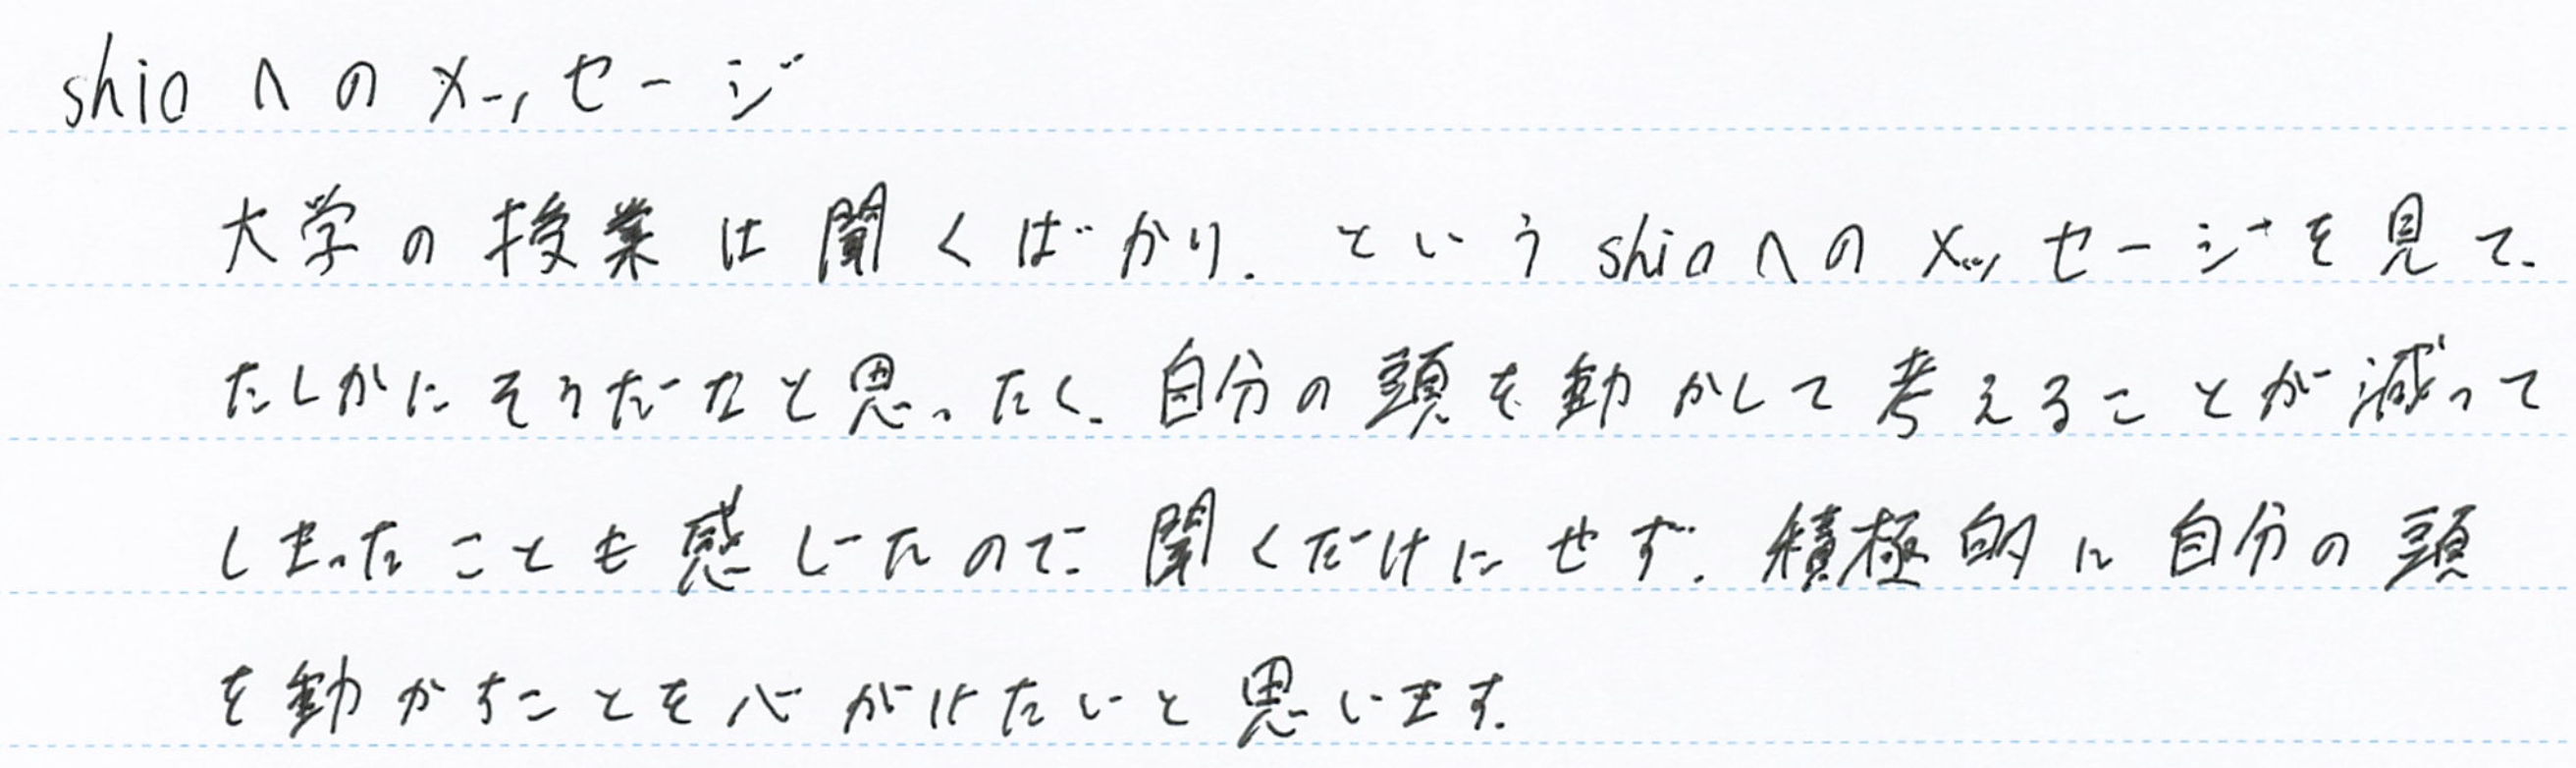 shioへのメッセージ
大学の授業は聞くばかり.というshioへのメッセージを見て.
たしかにそうだなと思ったく.自分の頭を動かして考えることが減って
しまったことも感じたので.聞くだけにせず.積極的に自分の頭
を動かすことを心がけたいと思います.